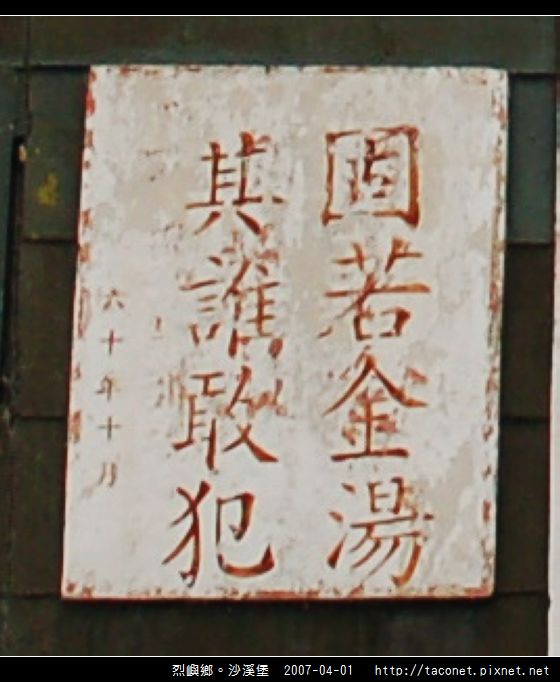 固若金湯
其誰敢犯
六十年十月
烈嶼鄉。沙溪堡 2007-04-01 http://taconet.pixnet.net